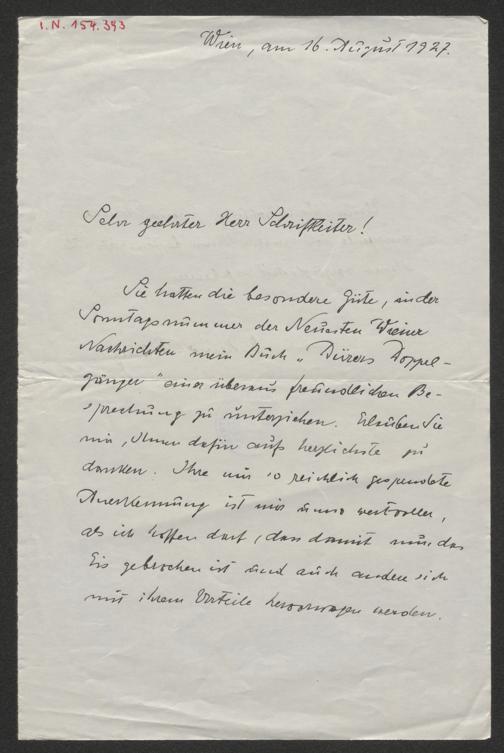 I.N. 154.393
Wien, am 16. August 1927.
Sehr geehrter Herr Schriftleiter!
Sie hatten die besondere Güte, in der
Sonntagsnummer der Neuesten Wiener
Nachrichten mein Buch „Dürers Doppel-
gänger" einer überaus freundlichen Be-
sprechung zu unterziehen. Erlauben Sie
mir, Ihnen dafür aufs herzlichste zu
danken. Ihre mir so reichlich gespendete
Anerkennung ist mir umso wertvoller,
als ich hoffen darf, dass damit nun das
Eis gebrochen ist und auch andere sich
mit ihrem Urteile hervorwagen werden.